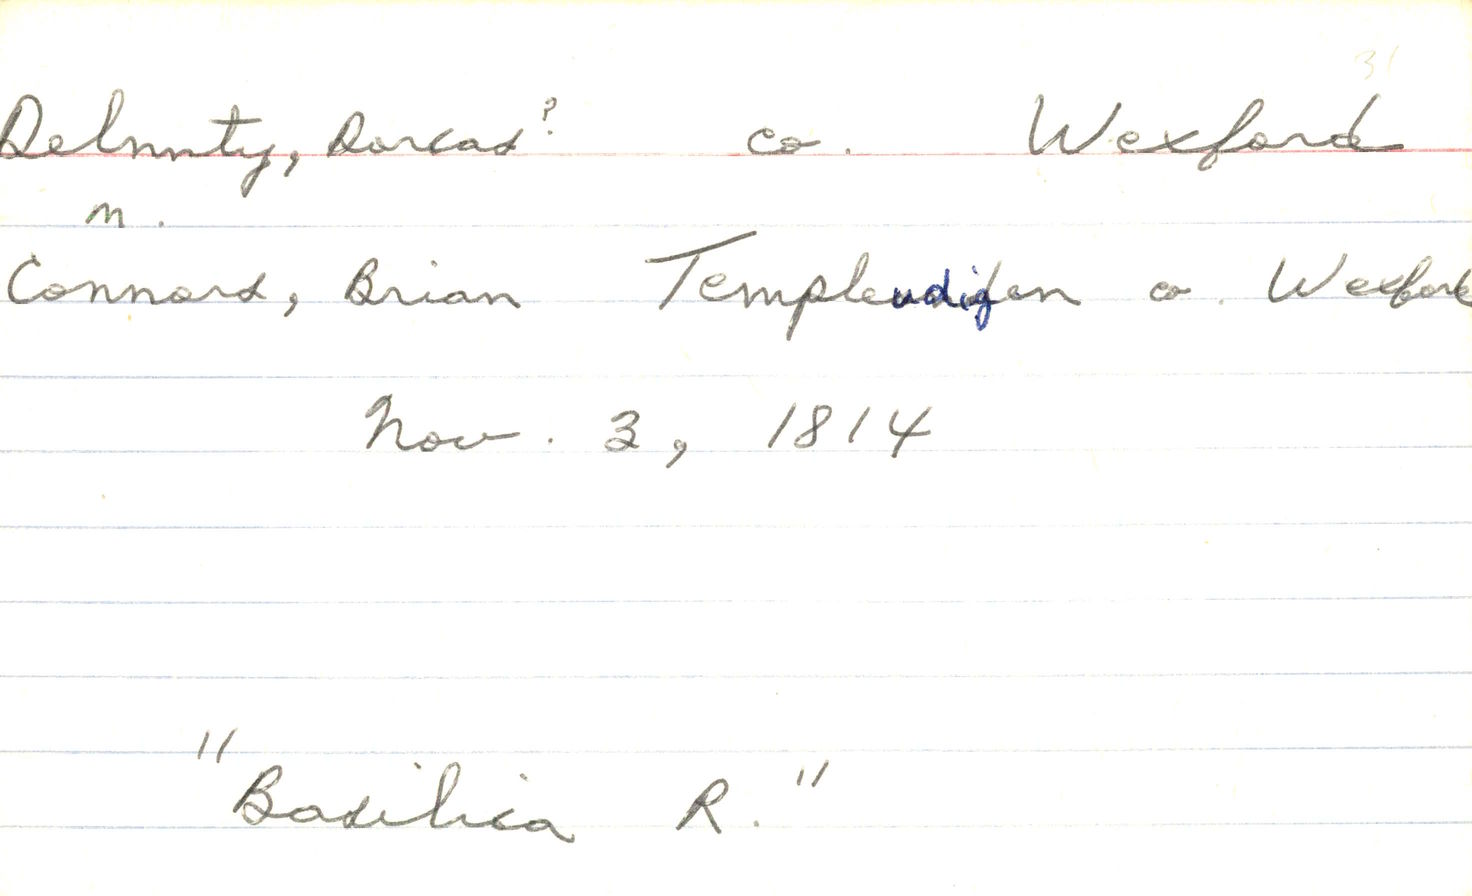 31
Delmnty, Dorcas? co. Wexford
m.
Connors, Brian Templeudigan co. Wexford
Nov. 3, 1814
"Basilica R."